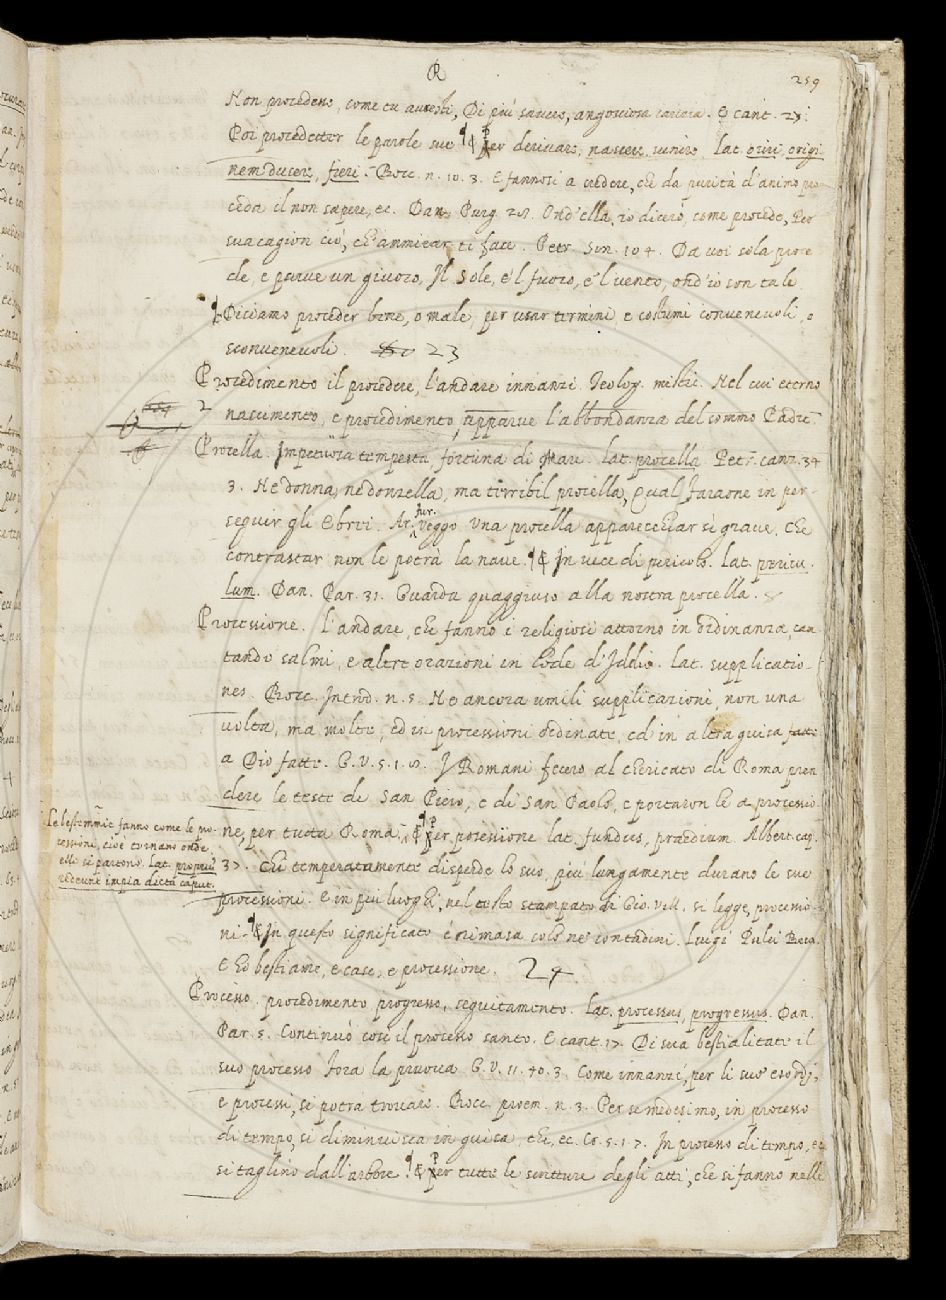 R
259
Non procedeno, come tu auresti, Di più sauere, angosciosa carizia. E cant. 23.
Poi procedetter le parole sue. ¶ & Per deriuare, nascere, uenire. Lat. oriri, origi
nem ducere, fieri. Bocc. n. 10. 3. E fannosi a credere, che da purità d'animo pro
ceda il non sapere, ec. Dan. Purg. 28. Ond'ella, io dicerò, come procede, Per
sua cagion ciò, ch'ammirar ti face. Petr. Son. 104. Da voi sola proce
de, e parue un giuoco, Il Sole, e'l fuoco, e'l uento, ond'io son tale.
¶ Diciamo proceder bene, o male, per usar termini, e costumi conueneuoli, o
sconueneuoli. 23
Procedimento il procedere, l'andare innanzi. Teolog. mistic. Nel cui eterno
2 nascimento, e procedimento, apparue l'abbondanza del sommo Padre
Procella. Impetuosa tempesta, fortuna di Mare. lat. procella. Petr. canz. 34
3. Ne donna, ne donzella, ma terribil procella, Qual Faraone in per-
seguir gli Ebrei. Ar. fur. Veggo una procella apparecchiar sì graue, Che
contrastar non le potrà la naue. ¶ & In uece di pericolo. Lat. pericu
lum. Dan. Par. 31. Guarda quaggiuso alla nostra procella.
Processione. L'andare, che fanno i religiosi attorno in ordinanza, can
tando salmi, e altre orazioni in lode d'Iddio. Lat. supplicatio-
nes. Bocc. Introd. n. 5. Ne ancora umili supplicazioni, non una
uolta, ma molte, ed in processioni ordinate, ed in altra guisa fatte
a Dio fatte. G. V. 5. 1. 8. I Romani fecero al chericato di Roma pren
dere le teste di San Piero, e di San Paolo, e portaron le a processio-
ne, per tutta Roma. ¶ & Per possessione lat. fundus, praedium. Albert. cap.
Le bestemmie fanno come le pro-
cessioni, cioè tornano onde
elle si partono. Lat. proprium
redeunt impia dicta caput.
37. Chi temperatamente dispende lo suo, più lungamente durano le sue
processioni. E in più luoghi, nel testo stampato di Gio. Vill. si legge, processio
ni. ¶ & In questo significato è rimasa solo ne' contadini. Luigi Pulci Beca.
E ho bestiame, e case, e processione. 24
Processo. procedimento progresso, seguitamento. Lat. processus, progressus. Dan.
Par. 5. Continuò così il processo santo. E cant. 17. Di sua bestialitate il
suo processo Fara la pruoua G. V. 11. 40. 3. Come innanzi, per li suoi esordj,
e processi, si potra trouare. Bocc. proem. n. 3. Per se medesimo, in processo
di tempo, si diminuisca in guisa, che, ec. Cr. 5. 1. 7. In processo di tempo, ec
si taglino dall'arbore. ¶ & Per tutte le scritture degli atti, che si fanno nelle